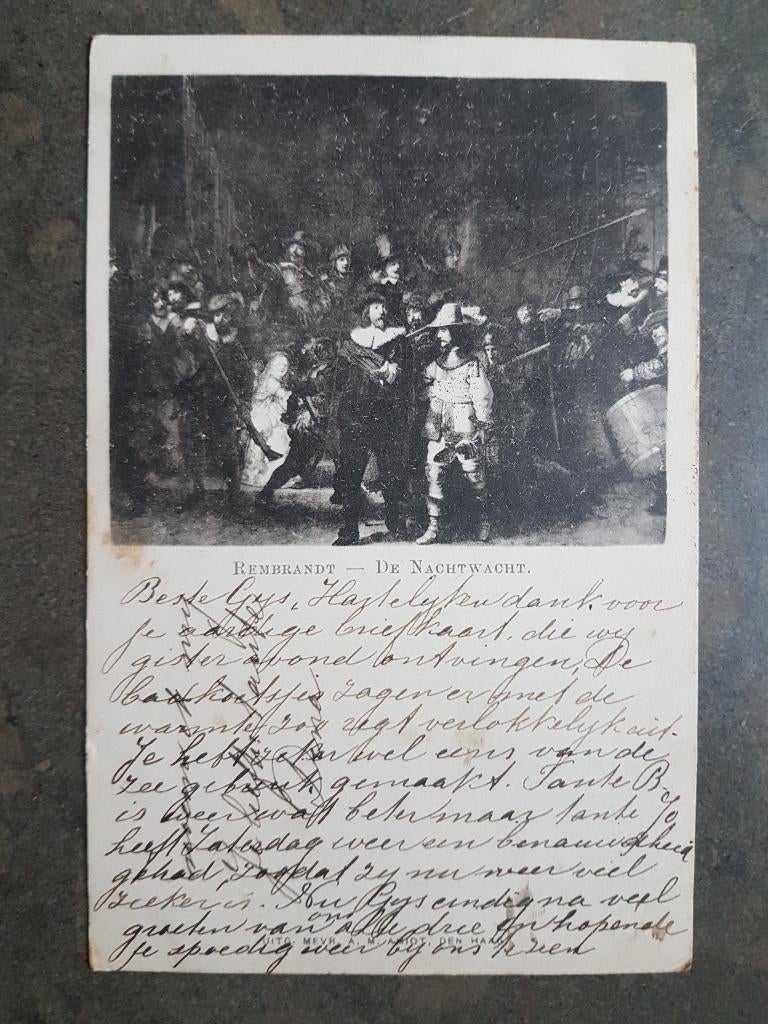 REMBRANDT — DE NACHTWACHT.
Beste Gys, Hartelyken dank voor
je aardige briefkaart, die wy
gister avond ontvingen. De
badkoetsjes zagen er met de
warmte zoo regt verlokkelyk uit.
Je hebt zeker wel eens van de
zee gebruik gemaakt. Tante B.
is weer wat beter maar tante Jo
heeft Zaterdag weer een benauwdheid
gehad, zoodat zy nu weer veel
zieker is. Nu Gys eindig na veel
groeten van ons alle drie en hopende
je spoedig weer by ons te zien
UITG. MEVR. A. M. AMIOT, DEN HAAG